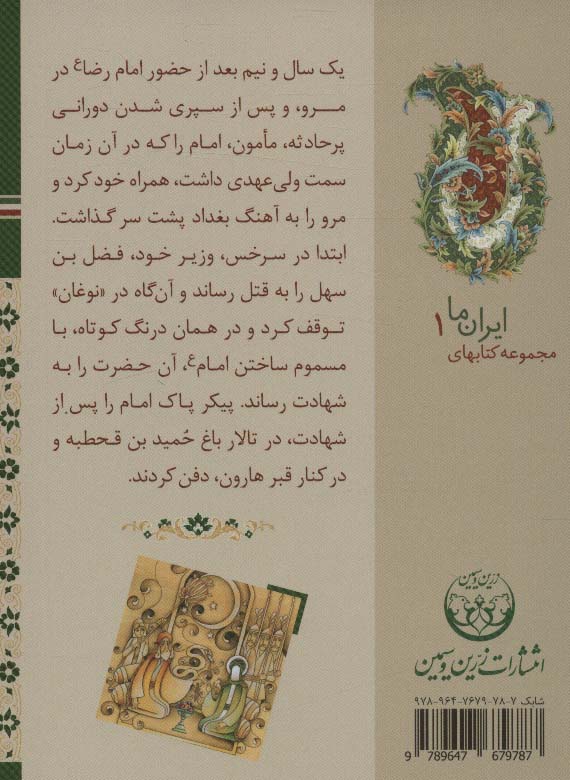 یک سال و نیم بعد از حضور امام رضاع در
مرو، و پس از سپری شدن دورانی
پرحادثه، مأمون، امام را که در آن زمان
سمت ولی‌عهدی داشت، همراه خود کرد و
مرو را به آهنگ بغداد پشت سر گذاشت.
ابتدا در سرخس، وزیر خود، فضل بن
سهل را به قتل رساند و آن‌گاه در «نوغان»
توقف کرد و در همان درنگ کوتاه، با
مسموم ساختن امامع، آن حضرت را به
شهادت رساند. پیکر پاک امام را پس از
شهادت، در تالار باغ حُمید بن قحطبه و
در کنار قبر هارون، دفن کردند.
ایران ما ۱
مجموعه کتابهای
زرین و سیمین
انتشارات زرّین و سیمین
شابک ۷-۷۸-۷۶۷۹-۹۶۴-۹۷۸
9 789647 679787